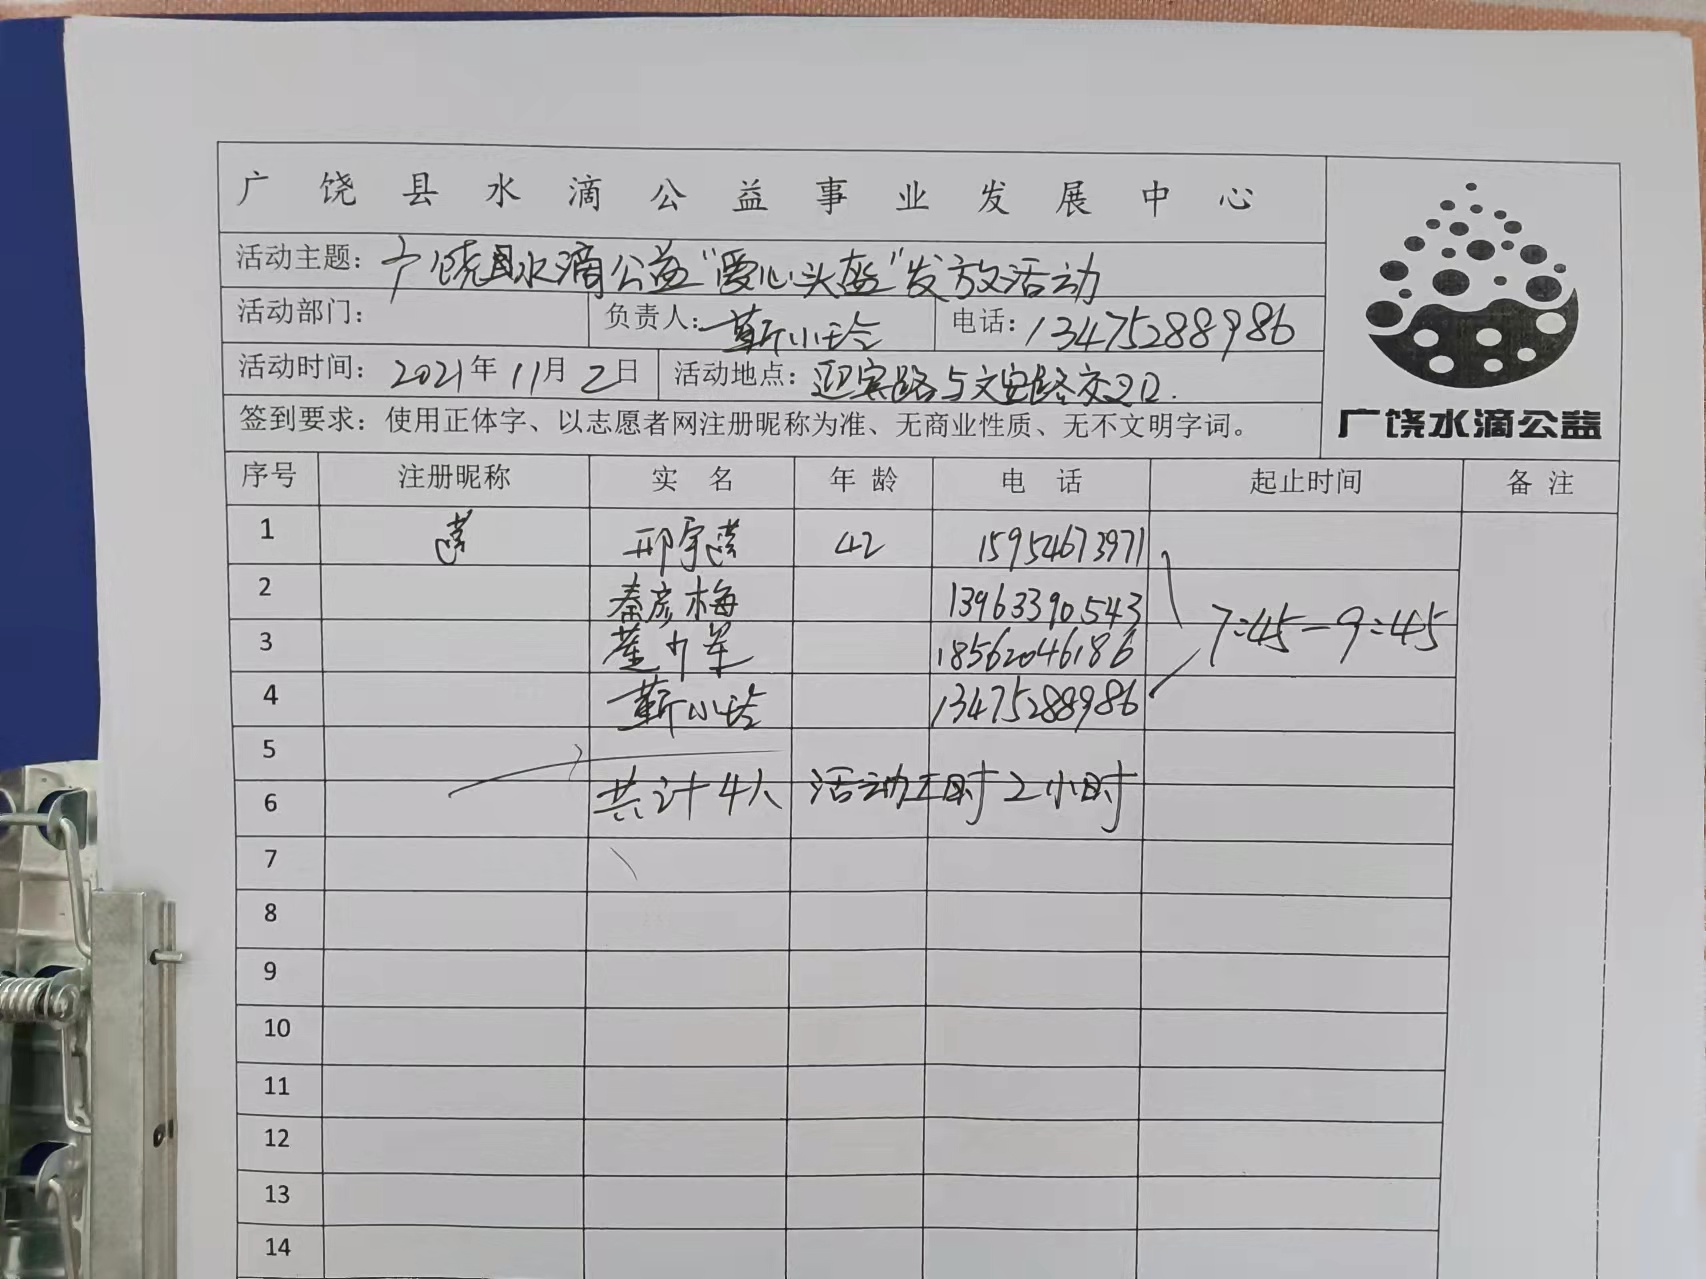 广饶县水滴公益事业发展中心
活动主题：广饶县水滴公益“爱心头盔”发放活动
活动部门： 负责人：靳小玲 电话：13475288986
活动时间：2021年11月2日 活动地点：迎宾路与文安路交叉口.
签到要求：使用正体字、以志愿者网注册昵称为准、无商业性质、无不文明字词。
广饶水滴公益
序号 注册昵称 实 名 年 龄 电 话 起止时间 备 注
1 42 15954673971
2 秦彦梅 13963390543
7:45-9:45
3 18562046186
4 靳小玲 13475288986
5
6 共计4人 活动工时2小时
7
8
9
10
11
12
13
14